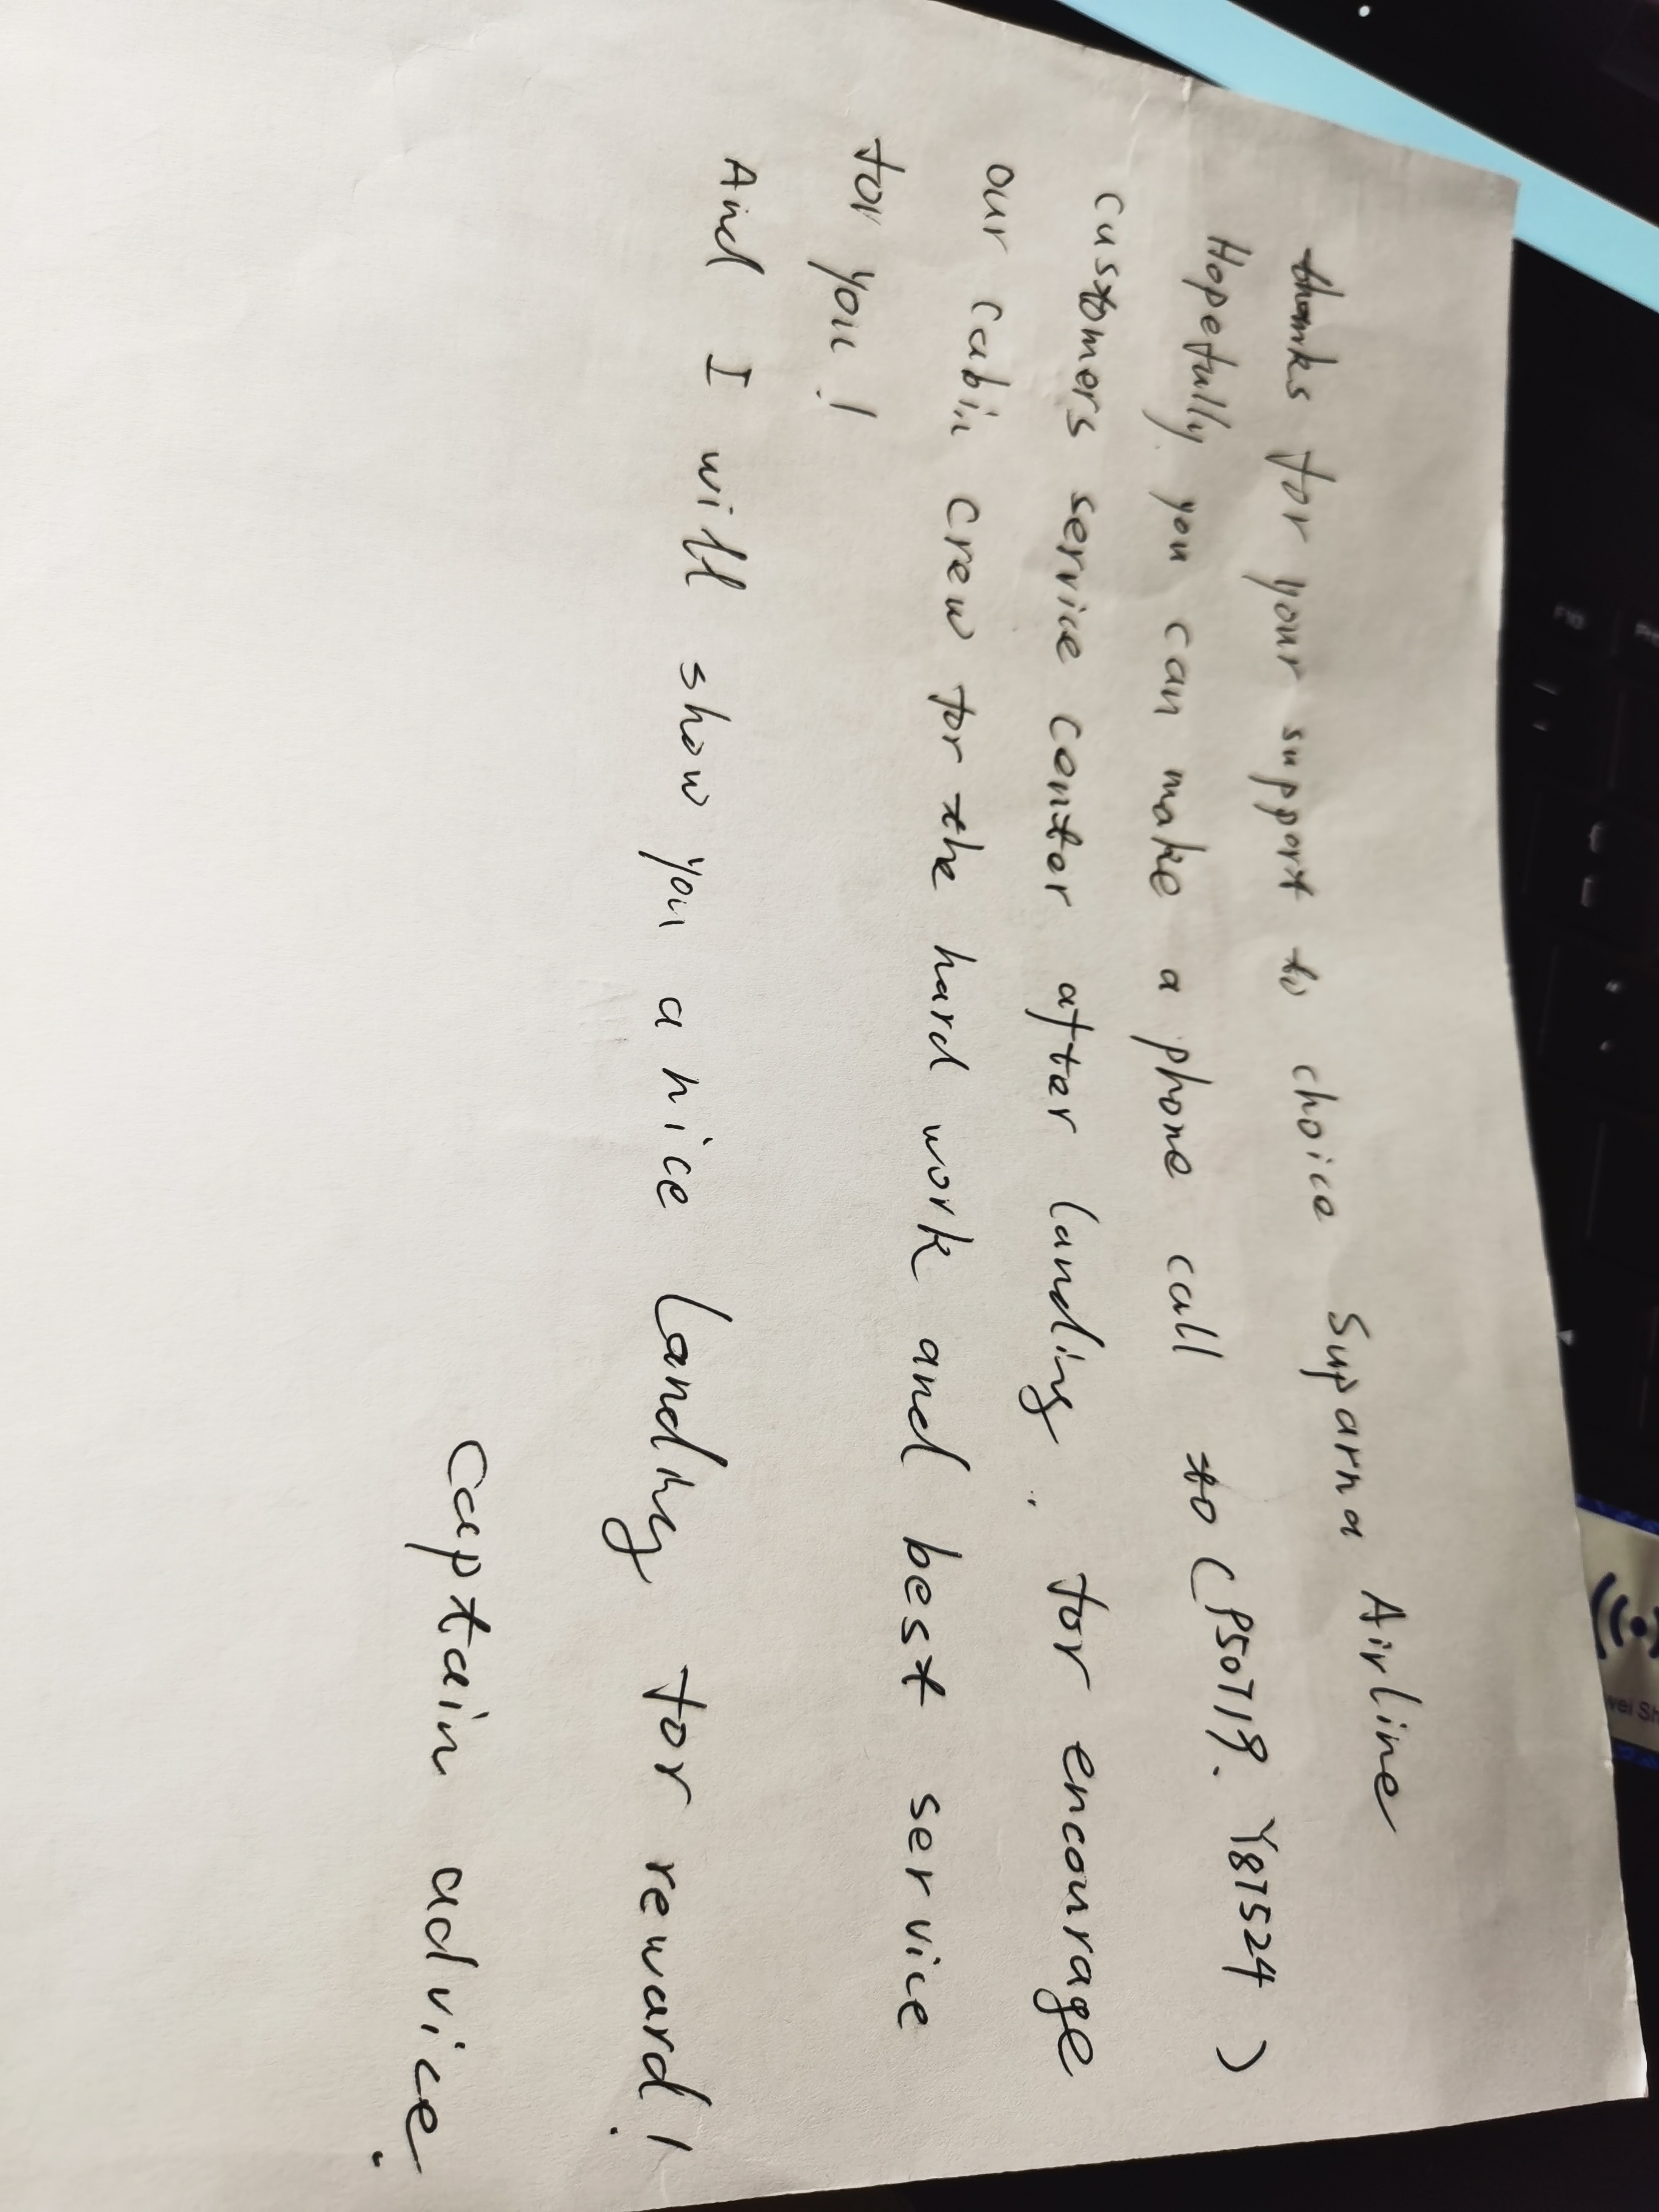 thanks for your support to choice Suparna Airline
Hopefully you can make a phone call to (P50719. Y87524)
customers service conter after landing. for encourage
our cabin crew for the hard work and best service
for you!
And I will show you a nice landing for reward!
Captain advice.
F10